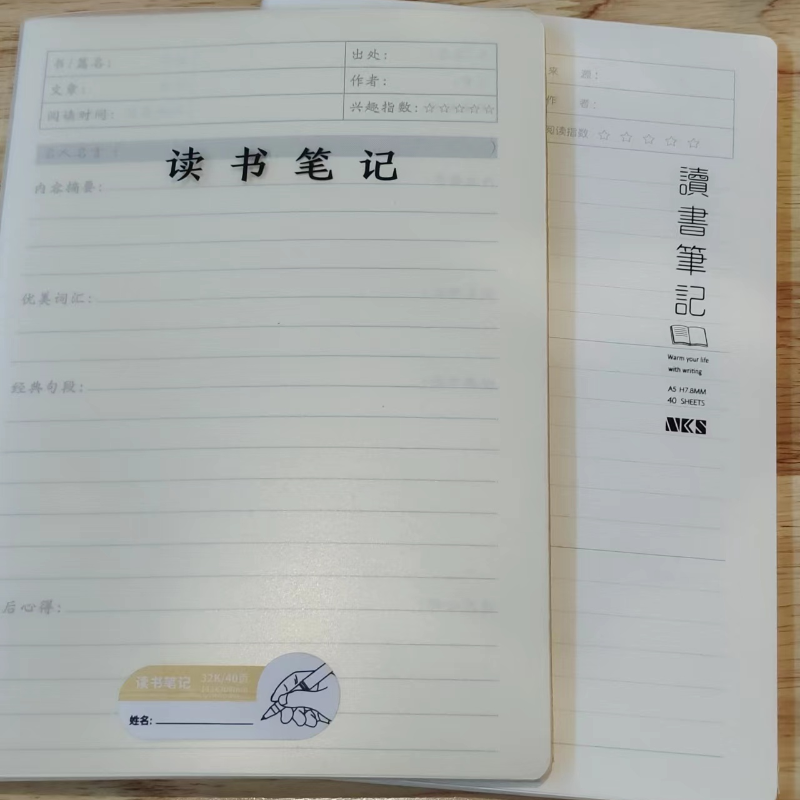 书/篇名：
出处：
文章：
作者：
阅读时间：
兴趣指数：☆☆☆☆☆
名人名言：
读书笔记
内容摘要：
优美词汇：
经典句段：
后心得：
读书笔记 32K/40页
姓名：
来 源：
作 者：
阅读指数 ☆ ☆ ☆ ☆ ☆
讀書筆記
Warm your life
with writing
A5 H7.8MM
40 SHEETS
NKS